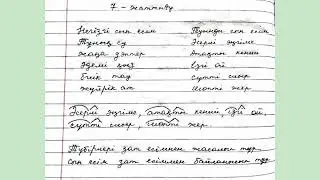 7 - жаттығу
Негізгі сын есім Туынды сын есім
Тұнық су Әсерлі әңгіме
жаңа дәптер Атақты кеніш
Әдемі қыз Ізгі ой
Биік тау сүтті сиыр
жүйрік ат Шөпті жер
Әсерлі әңгіме, атақты кеніш, ізгі ой,
сүтті сиыр, шөпті жер.
Түбірлері зат есімнен жасалып тұр.
Сын есім зат есіммен байланысып тұр